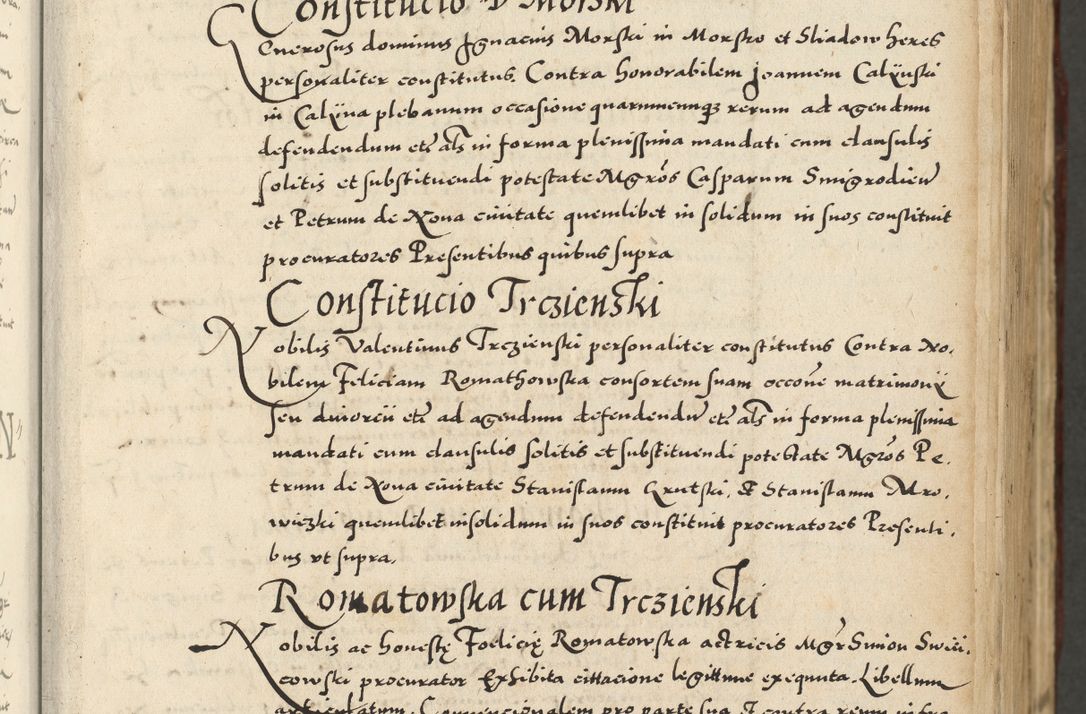 Constitucio D Morski
Generosus dominus Ignacius Morski in Morsko et Sliadow heres
personaliter constitutus. Contra honorabilem Joannem Calynski
in Calyna plebanum occasione quarumcumqz rerum ad agendum
defendendum etc als in forma plenissima mandati cum clausulis
solitis et substituendi potestate Mgros Casparum Smigrodien
et Petrum de Noua ciuitate quemlibet in solidum in suos constituit
procuratores Presentibus quibus supra
Constitucio Trczienski
Nobilis Valentinus Trczienski personaliter constitutus Contra No.
bilem Feliciam Romathowska consortem suam occone matrimonij
seu diuorcii etc ad agendum defendendu etc als in forma plenissima
mandati cum clausulis solitis et substituendi potestate Mgros Pe.
trum de Noua ciuitate Stanislaum Krutski, & Stanislaum Mro.
wiczki quemlibet insolidum in suos constituit procuratores Presenti.
bus vt supra.
Romatowska cum Trczienski
Nobilis ac honestę Foelicię Romatowska actricis Mgr Simon
cowski procurator Exhibita cittacione legittime exequuta. Libellum
articulatum. Conuencionalem pro parte sua & contra reum infra